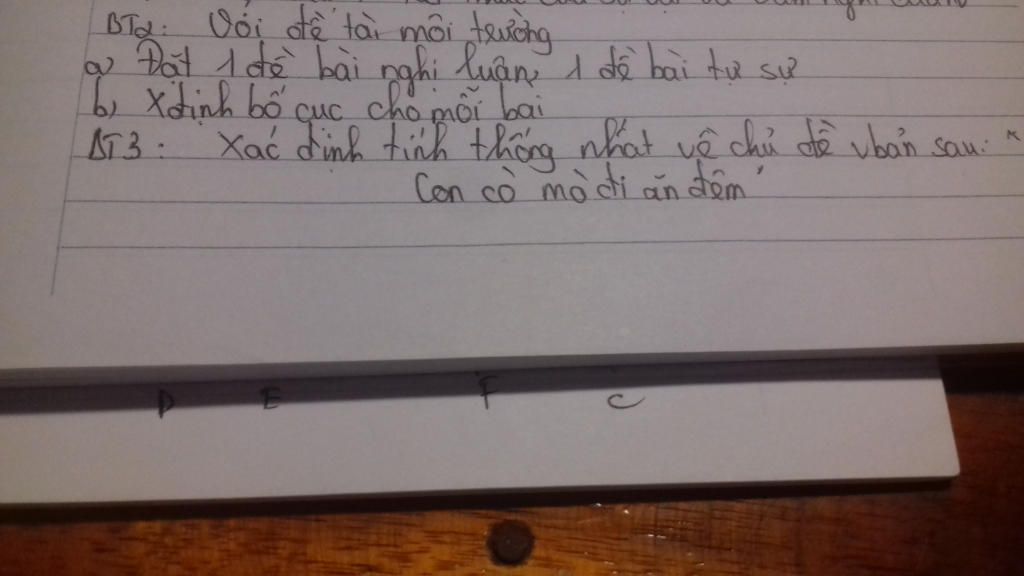 BT2: Với đề tài môi trường
a) Đặt 1 đề bài nghị luận, 1 đề bài tự sự
b) Xđịnh bố cục cho mỗi bài
BT3: Xác định tính thống nhất về chủ đề vbản sau: "
Con cò mà đi ăn đêm"
D E F C